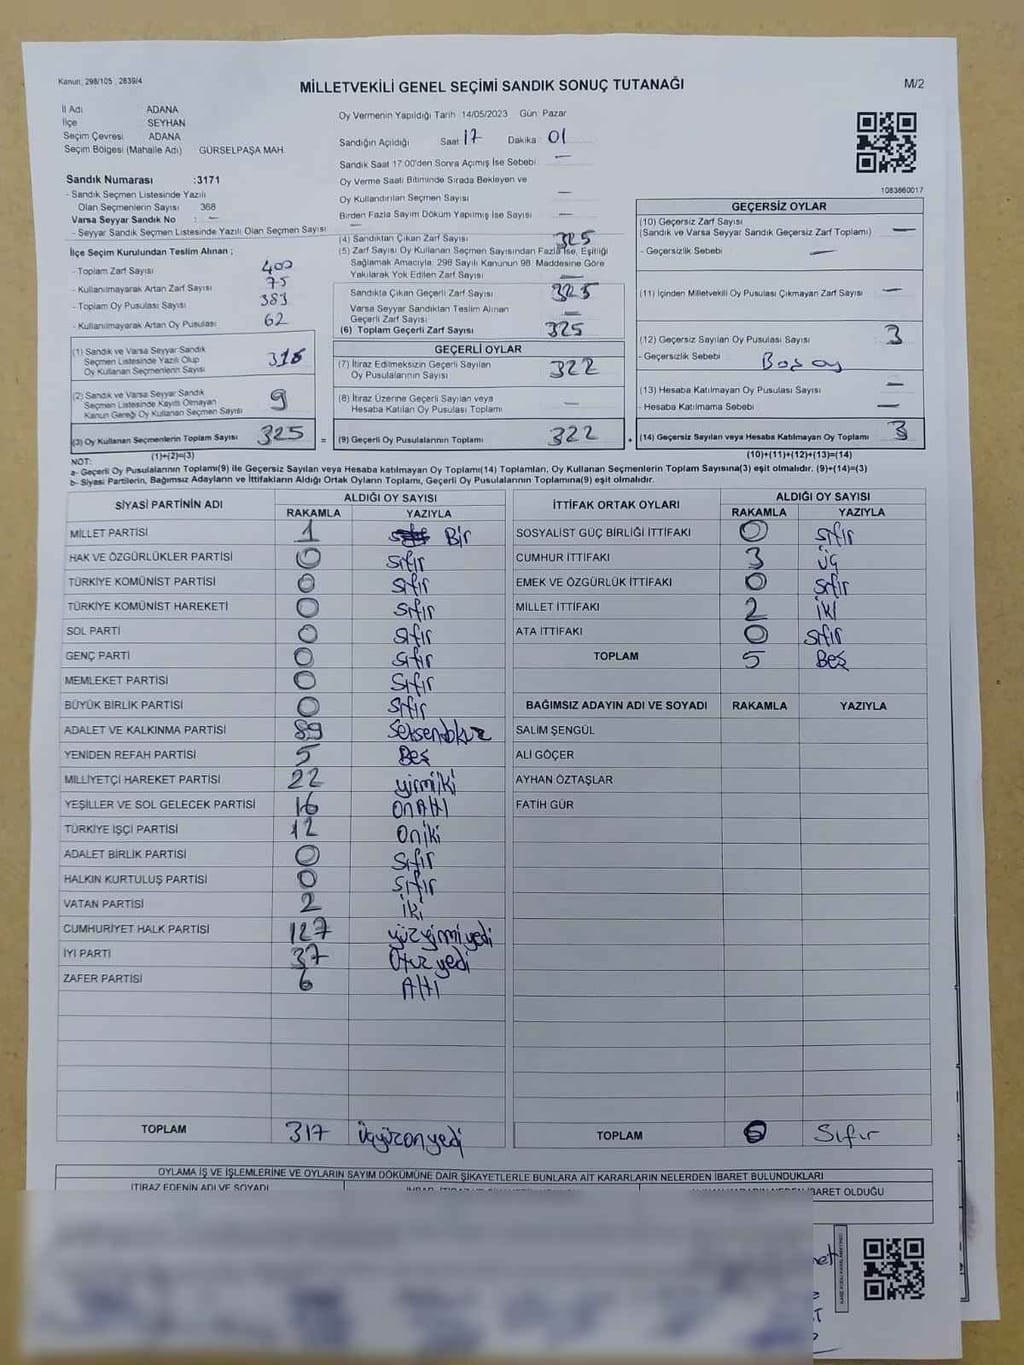 Kanun: 298/105 , 2839/4
MİLLETVEKİLİ GENEL SEÇİMİ SANDIK SONUÇ TUTANAĞI
M/2
İl Adı ADANA
İlçe SEYHAN
Seçim Çevresi ADANA
Seçim Bölgesi (Mahalle Adı) GÜRSELPAŞA MAH.
Oy Vermenin Yapıldığı Tarih 14/05/2023 Gün Pazar
Sandığın Açıldığı Saat 17 Dakika 01
Sandık Saat 17.00'den Sonra Açımış İse Sebebi —
Oy Verme Saati Bitiminde Sırada Bekleyen ve
Oy Kullandırılan Seçmen Sayısı —
Birden Fazla Sayım Döküm Yapılmış İse Sayısı —
1083860017
Sandık Numarası :3171
- Sandık Seçmen Listesinde Yazılı
Olan Seçmenlerin Sayısı 368
Varsa Seyyar Sandık No : —
- Seyyar Sandık Seçmen Listesinde Yazılı Olan Seçmen Sayısı —
İlçe Seçim Kurulundan Teslim Alınan ;
- Toplam Zarf Sayısı 400
- Kullanılmayarak Artan Zarf Sayısı 75
- Toplam Oy Pusulası Sayısı 383
- Kullanılmayarak Artan Oy Pusulası 62
(1) Sandık ve Varsa Seyyar Sandık
Seçmen Listesinde Yazılı Olup
Oy Kullanan Seçmenlerin Sayısı 316
(2) Sandık ve Varsa Seyyar Sandık
Seçmen Listesinde Kayıtlı Olmayan
Kanun Gereği Oy Kullanan Seçmen Sayısı 9
(3) Oy Kullanan Seçmenlerin Toplam Sayısı 325 =
(1)+(2)=(3)
(4) Sandıktan Çıkan Zarf Sayısı 325
(5) Zarf Sayısı Oy Kullanan Seçmen Sayısından Fazla İse, Eşitliği
Sağlamak Amacıyla, 298 Sayılı Kanunun 98. Maddesine Göre
Yakılarak Yok Edilen Zarf Sayısı —
Sandıkta Çıkan Geçerli Zarf Sayısı 325
Varsa Seyyar Sandıktan Teslim Alınan
Geçerli Zarf Sayısı —
(6) Toplam Geçerli Zarf Sayısı 325
GEÇERLİ OYLAR
(7) İtiraz Edilmeksizin Geçerli Sayılan
Oy Pusulalarının Sayısı 322
(8) İtiraz Üzerine Geçerli Sayılan veya
Hesaba Katılan Oy Pusulası Toplamı —
(9) Geçerli Oy Pusulalarının Toplamı 322 +
GEÇERSİZ OYLAR
(10) Geçersiz Zarf Sayısı
(Sandık ve Varsa Seyyar Sandık Geçersiz Zarf Toplamı) —
- Geçersizlik Sebebi —
(11) İçinden Milletvekili Oy Pusulası Çıkmayan Zarf Sayısı —
(12) Geçersiz Sayılan Oy Pusulası Sayısı 3
- Geçersizlik Sebebi Boş oy
(13) Hesaba Katılmayan Oy Pusulası Sayısı —
- Hesaba Katılmama Sebebi —
(14) Geçersiz Sayılan veya Hesaba Katılmayan Oy Toplamı 3
(10)+(11)+(12)+(13)=(14)
NOT:
a- Geçerli Oy Pusulalarının Toplamı(9) ile Geçersiz Sayılan veya Hesaba katılmayan Oy Toplamı(14) Toplamları, Oy Kullanan Seçmenlerin Toplam Sayısına(3) eşit olmalıdır. (9)+(14)=(3)
b- Siyasi Partilerin, Bağımsız Adayların ve İttifakların Aldığı Ortak Oyların Toplamı, Geçerli Oy Pusulalarının Toplamına(9) eşit olmalıdır.
SİYASİ PARTİNİN ADI ALDIĞI OY SAYISI
RAKAMLA YAZIYLA
MİLLET PARTİSİ 1 Bir
HAK VE ÖZGÜRLÜKLER PARTİSİ 0 sıfır
TÜRKİYE KOMÜNİST PARTİSİ 0 sıfır
TÜRKİYE KOMÜNİST HAREKETİ 0 sıfır
SOL PARTİ 0 sıfır
GENÇ PARTİ 0 sıfır
MEMLEKET PARTİSİ 0 sıfır
BÜYÜK BİRLİK PARTİSİ 0 sıfır
ADALET VE KALKINMA PARTİSİ 89 seksendokuz
YENİDEN REFAH PARTİSİ 5 Beş
MİLLİYETÇİ HAREKET PARTİSİ 22 yirmiiki
YEŞİLLER VE SOL GELECEK PARTİSİ 16 onAltı
TÜRKİYE İŞÇİ PARTİSİ 12 Oniki
ADALET BİRLİK PARTİSİ 0 sıfır
HALKIN KURTULUŞ PARTİSİ 0 sıfır
VATAN PARTİSİ 2 iki
CUMHURİYET HALK PARTİSİ 127 yüzyirmiyedi
İYİ PARTİ 37 Otuzyedi
ZAFER PARTİSİ 6 Altı
TOPLAM 317 üçyüzonyedi
İTTİFAK ORTAK OYLARI ALDIĞI OY SAYISI
RAKAMLA YAZIYLA
SOSYALİST GÜÇ BİRLİĞİ İTTİFAKI 0 sıfır
CUMHUR İTTİFAKI 3 üç
EMEK VE ÖZGÜRLÜK İTTİFAKI 0 sıfır
MİLLET İTTİFAKI 2 iki
ATA İTTİFAKI 0 sıfır
TOPLAM 5 Beş
BAĞIMSIZ ADAYIN ADI VE SOYADI RAKAMLA YAZIYLA
SALİM ŞENGÜL
ALİ GÖÇER
AYHAN ÖZTAŞLAR
FATİH GÜR
TOPLAM 0 Sıfır
OYLAMA İŞ VE İŞLEMLERİNE VE OYLARIN SAYIM DÖKÜMÜNE DAİR ŞİKAYETLERLE BUNLARA AİT KARARLARIN NELERDEN İBARET BULUNDUKLARI
İTİRAZ EDENİN ADI VE SOYADI
İBARET OLDUĞU